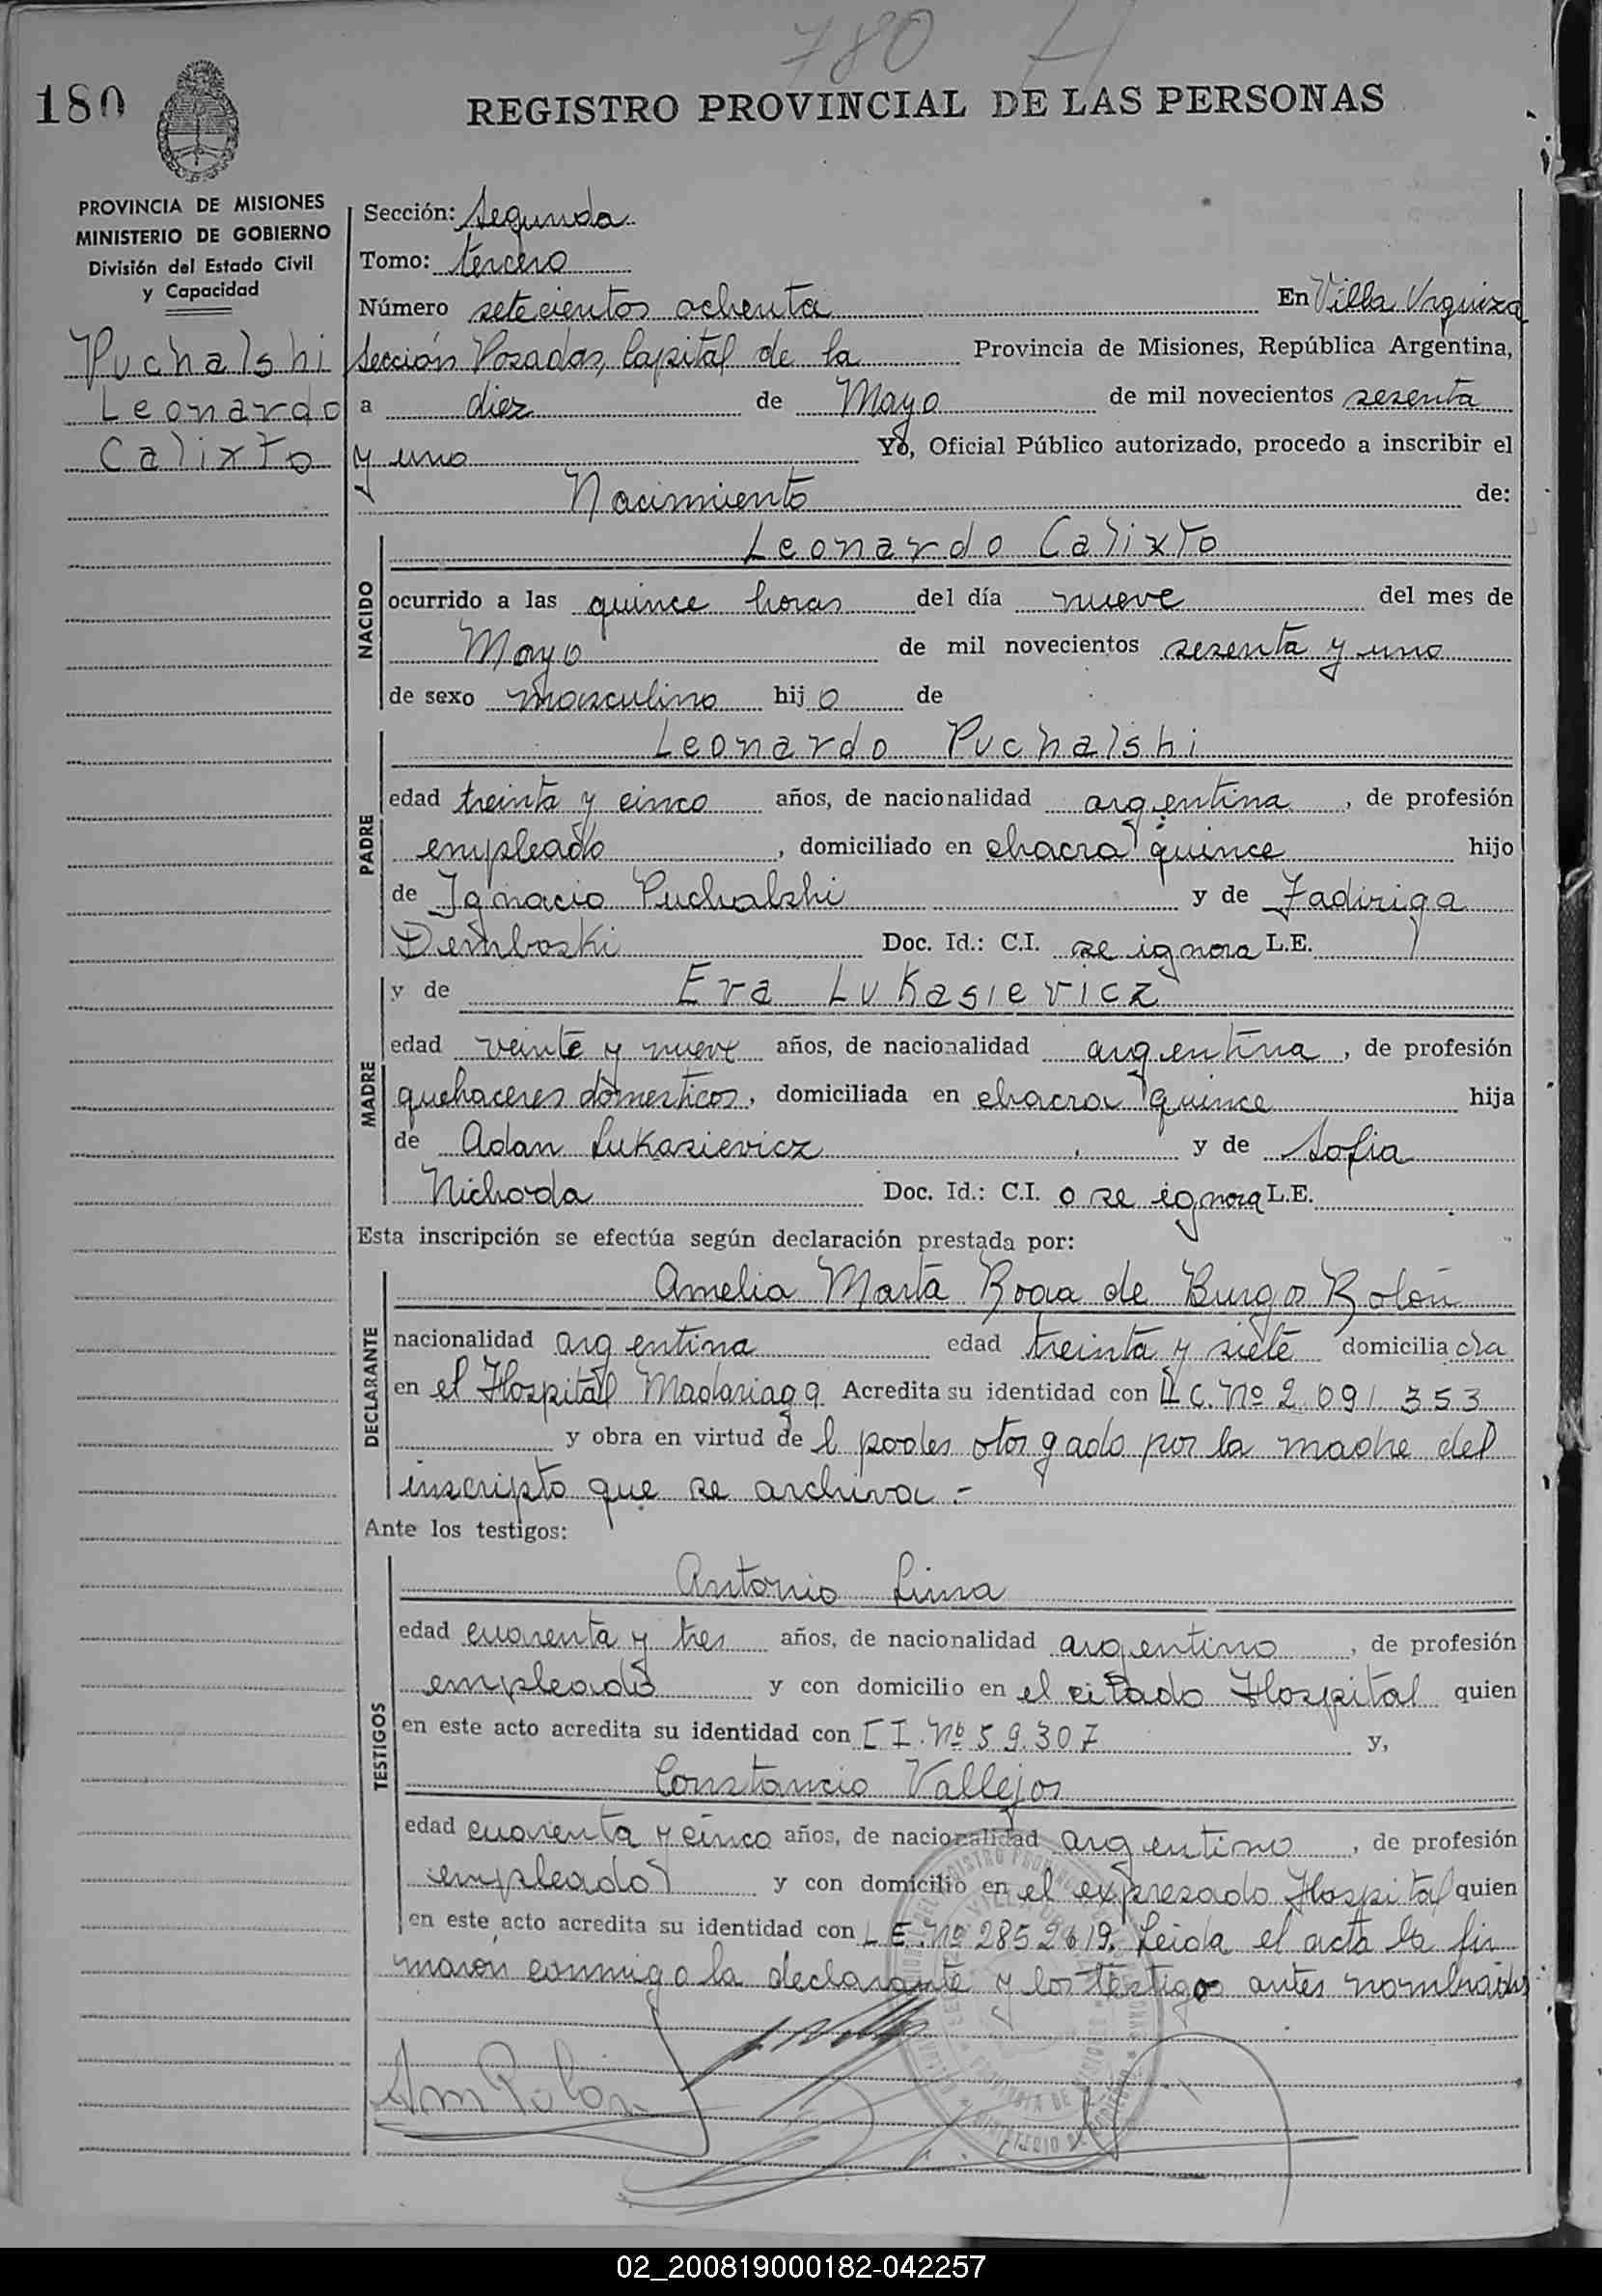 780
180
REGISTRO PROVINCIAL DE LAS PERSONAS
PROVINCIA DE MISIONES
MINISTERIO DE GOBIERNO
División del Estado Civil
y Capacidad
Puchalshi
Leonardo
Calixto
Sección: Segunda
Tomo: tercero
Número setecientos ochenta En Villa Urquiza
Sección Posadas, Capital de la Provincia de Misiones, República Argentina,
a diez de Mayo de mil novecientos sesenta
y uno Yo, Oficial Público autorizado, procedo a inscribir el
Nacimiento de:
Leonardo Calixto
NACIDO
ocurrido a las quince horas del día nueve del mes de
Mayo de mil novecientos sesenta y uno
de sexo masculino hijo de
Leonardo Puchalshi
PADRE
edad treinta y cinco años, de nacionalidad argentina, de profesión
empleado, domiciliado en chacra quince hijo
de Ignacio Puchalshi y de Jadiriga
Demboski Doc. Id.: C.I. se ignora L.E.
y de Eva Lukasievicz
MADRE
edad veinte y nueve años, de nacionalidad argentina, de profesión
quehaceres domesticos, domiciliada en chacra quince hija
de Adan Lukasievicz y de Sofia
Nichoda Doc. Id.: C.I. o se ignora L.E.
Esta inscripción se efectúa según declaración prestada por:
Amelia Marta Roa de Burgos Rolón
DECLARANTE
nacionalidad argentina edad treinta y siete domiciliada
en el Hospital Madariaga Acredita su identidad con L C. Nº 2.091.353
y obra en virtud del poder otorgado por la madre del
inscripto que se archiva.-
Ante los testigos:
Antonio Lima
TESTIGOS
edad cuarenta y tres años, de nacionalidad argentino, de profesión
empleado y con domicilio en el citado Hospital quien
en este acto acredita su identidad con C I. Nº 59.307 y,
Constancio Vallejos
edad cuarenta y cinco años, de nacionalidad argentino, de profesión
empleado y con domicilio en el expresado Hospital quien
en este acto acredita su identidad con L E. Nº 2852619. Leida el acta la fir
maron conmigo la declarante y los testigos antes nombrados
Am Rolon
02_200819000182-042257